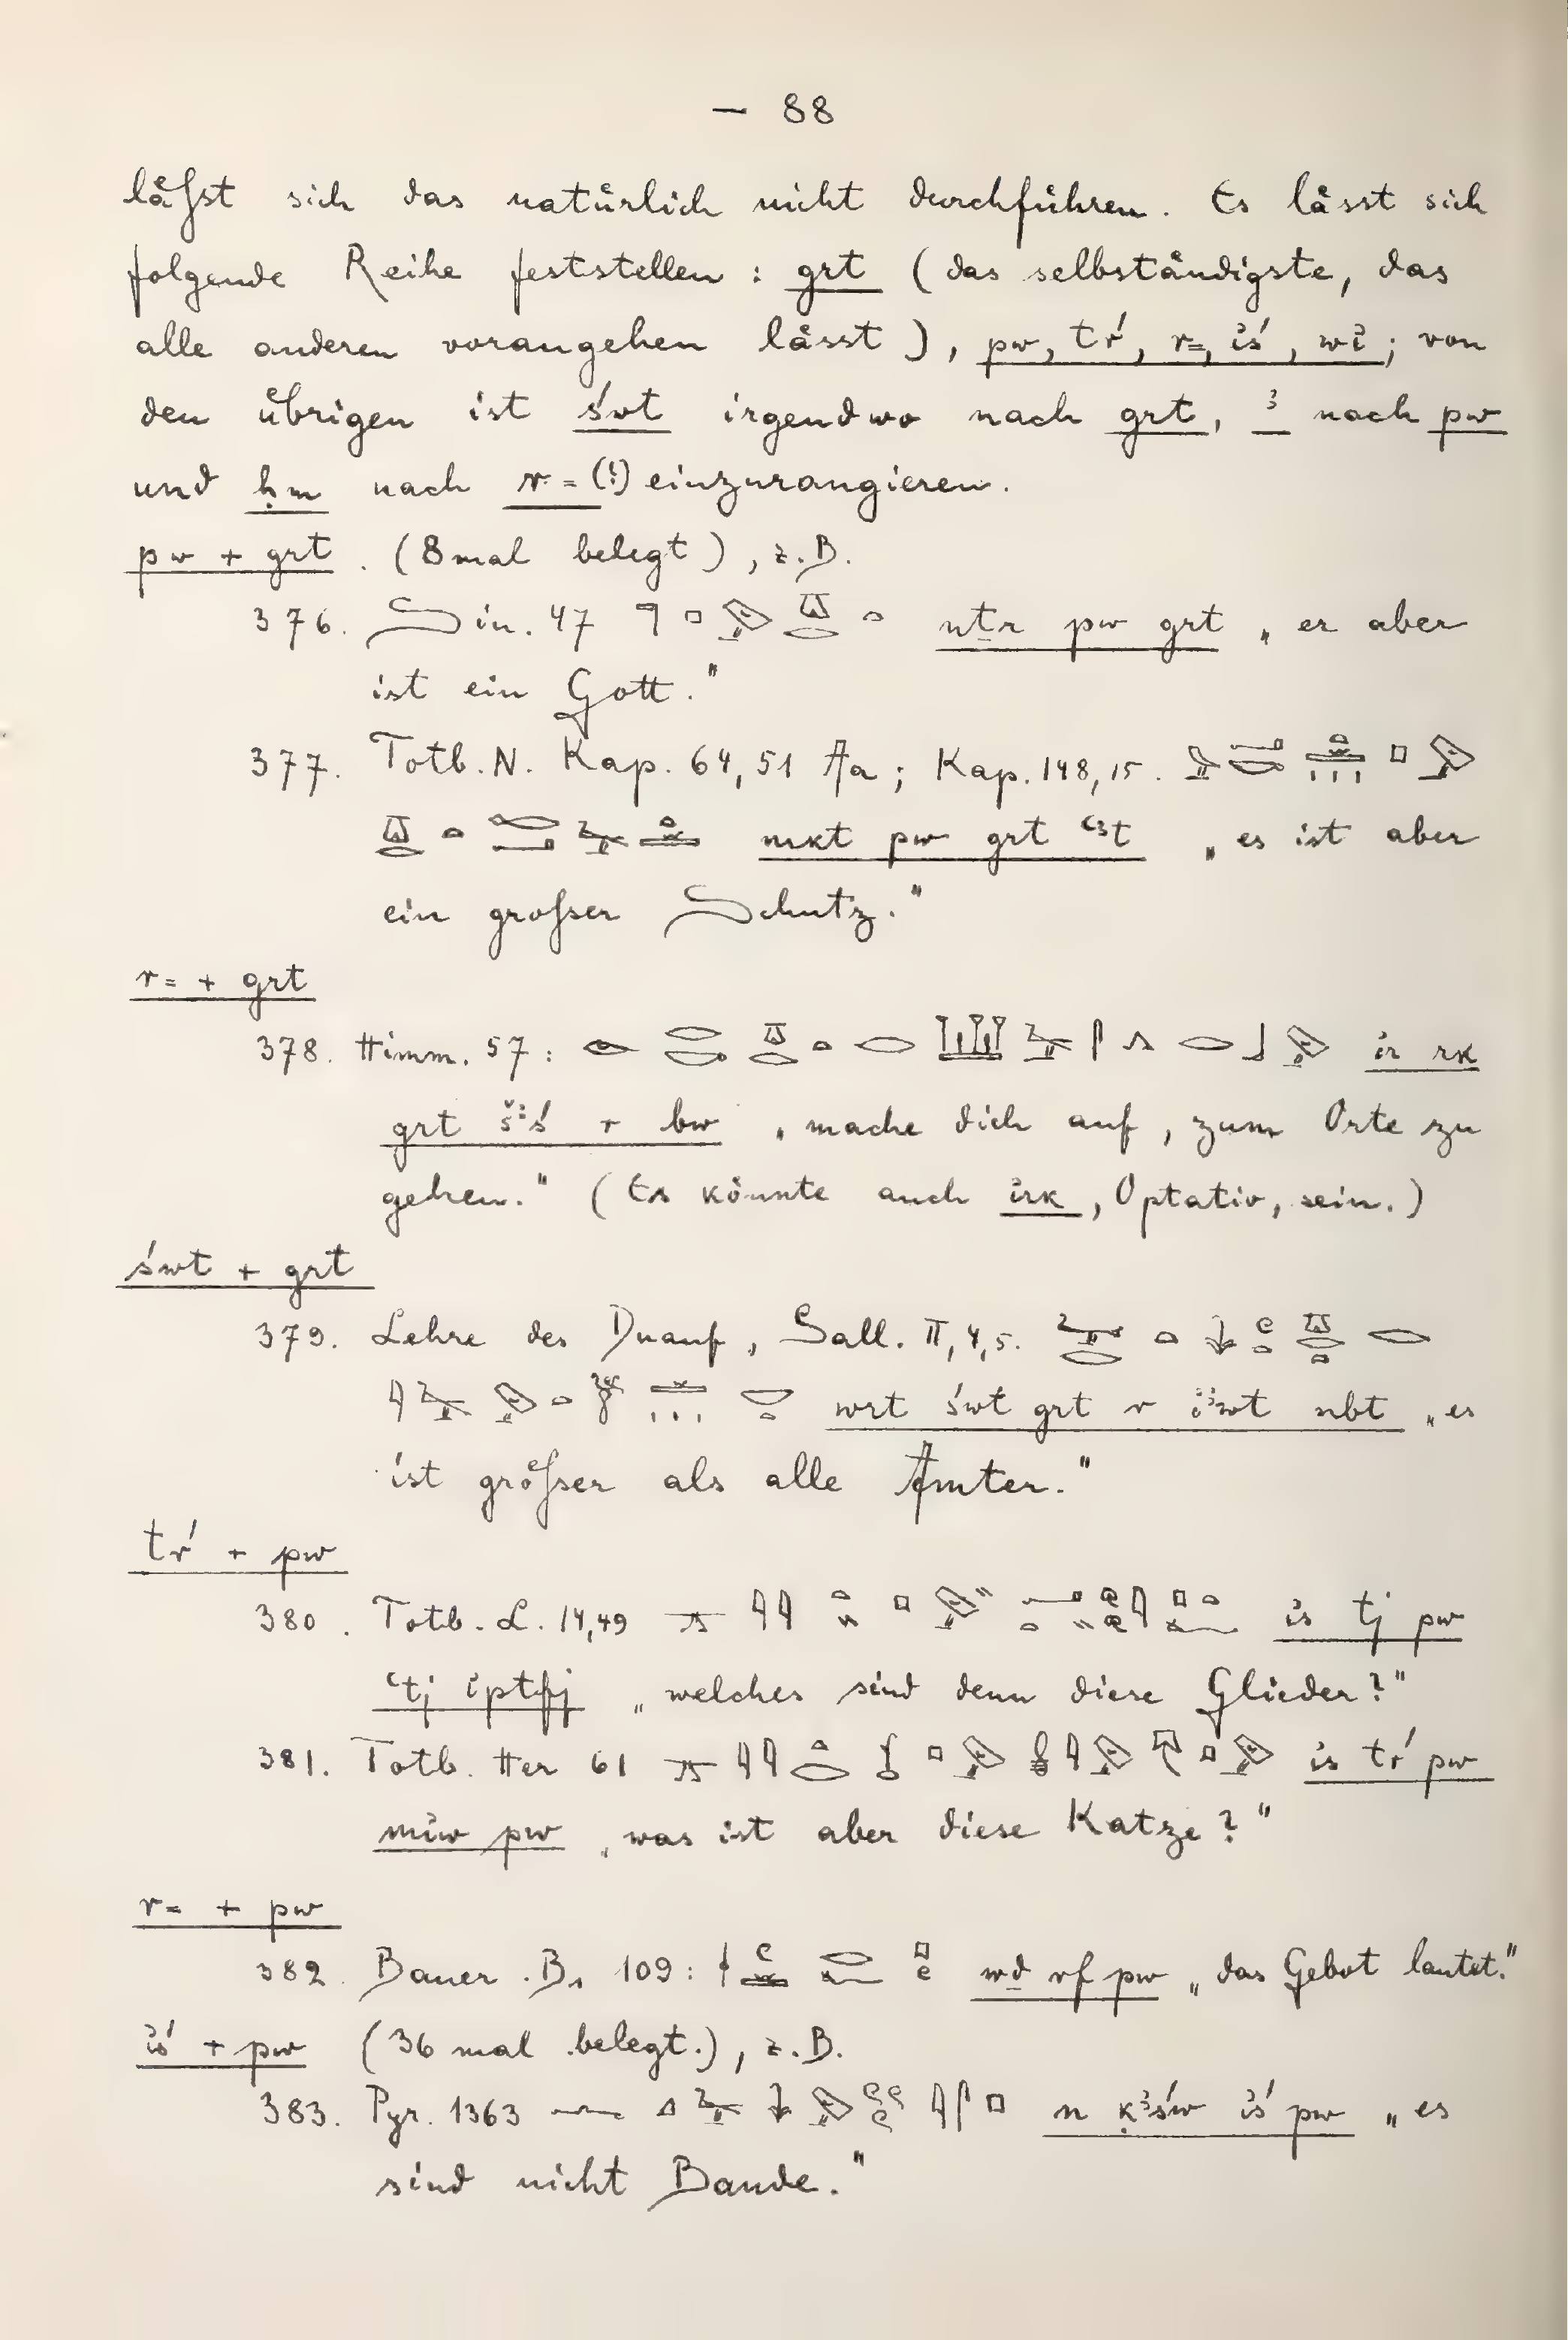 — 88
läſst sich das natürlich nicht durchführen. Es lässt sich
folgende Reihe feststellen : grt (das selbständigste, das
alle anderen vorangehen lässt), pw, tŕ, r=, iś, wi; von
den übrigen ist św̓t irgendwo nach grt, ꜣ nach pw
und ḥm nach r=(!) einzurangieren.
pw + grt. (8mal belegt), z.B.
376. Sin. 47 nṯr pw grt „er aber
ist ein Gott."
377. Totb. N. Kap. 64,51 Aa; Kap. 148,15.
mkt pw grt ꜥꜣt „es ist aber
ein großer Schutz."
r= + grt
378. Himm. 57: ir rk
grt šꜣś r bw „mache dich auf, zum Orte zu
gehen." (Es könnte auch irk, Optativ, sein.)
śwt + grt
379. Lehre des Duauf, Sall. II,4,5.
wrt śwt grt r iꜣwt nbt „es
ist größer als alle Ämter."
tŕ + pw
380. Totb. L. 14,49 is tj pw
ꜥtj iptfj „welches sind denn diese Glieder?"
381. Totb. Her 61 is tŕ pw
miw pw „was ist aber diese Katze?"
r= + pw
382. Bauer. B1 109: wḏ rf pw „das Gebot lautet."
iś + pw (36 mal belegt.), z.B.
383. Pyr. 1363 n ḳꜣśw iś pw „es
sind nicht Bande."